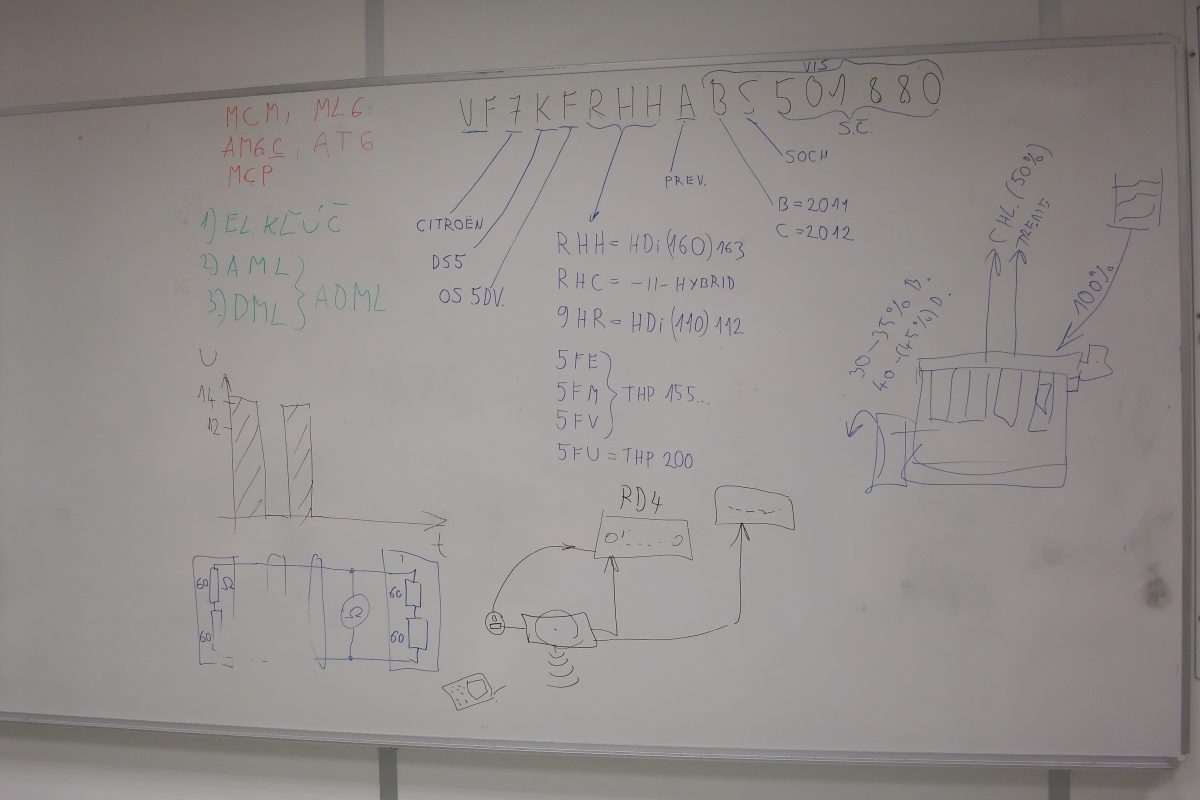 MCM, ML6
AM6C, AT6
MCP
1) EL. KĽÚČ
2) AML
3) DML
ADML
VIS
VF7KFRHHABS501880
S.Č.
CITROËN
DS5
OS 5DV.
PREV.
SOCH
B = 2011
C = 2012
RHH = HDi (160) 163
RHC = -11- HYBRID
9HR = HDi (110) 112
5FE
5FM
5FV
THP 155...
5FU = THP 200
CHL. (50%)
TRENIE
100%
30-35% B.
40-(45%) D.
U
14
12
t
60 Ω
60
Ω
60
60
RD4